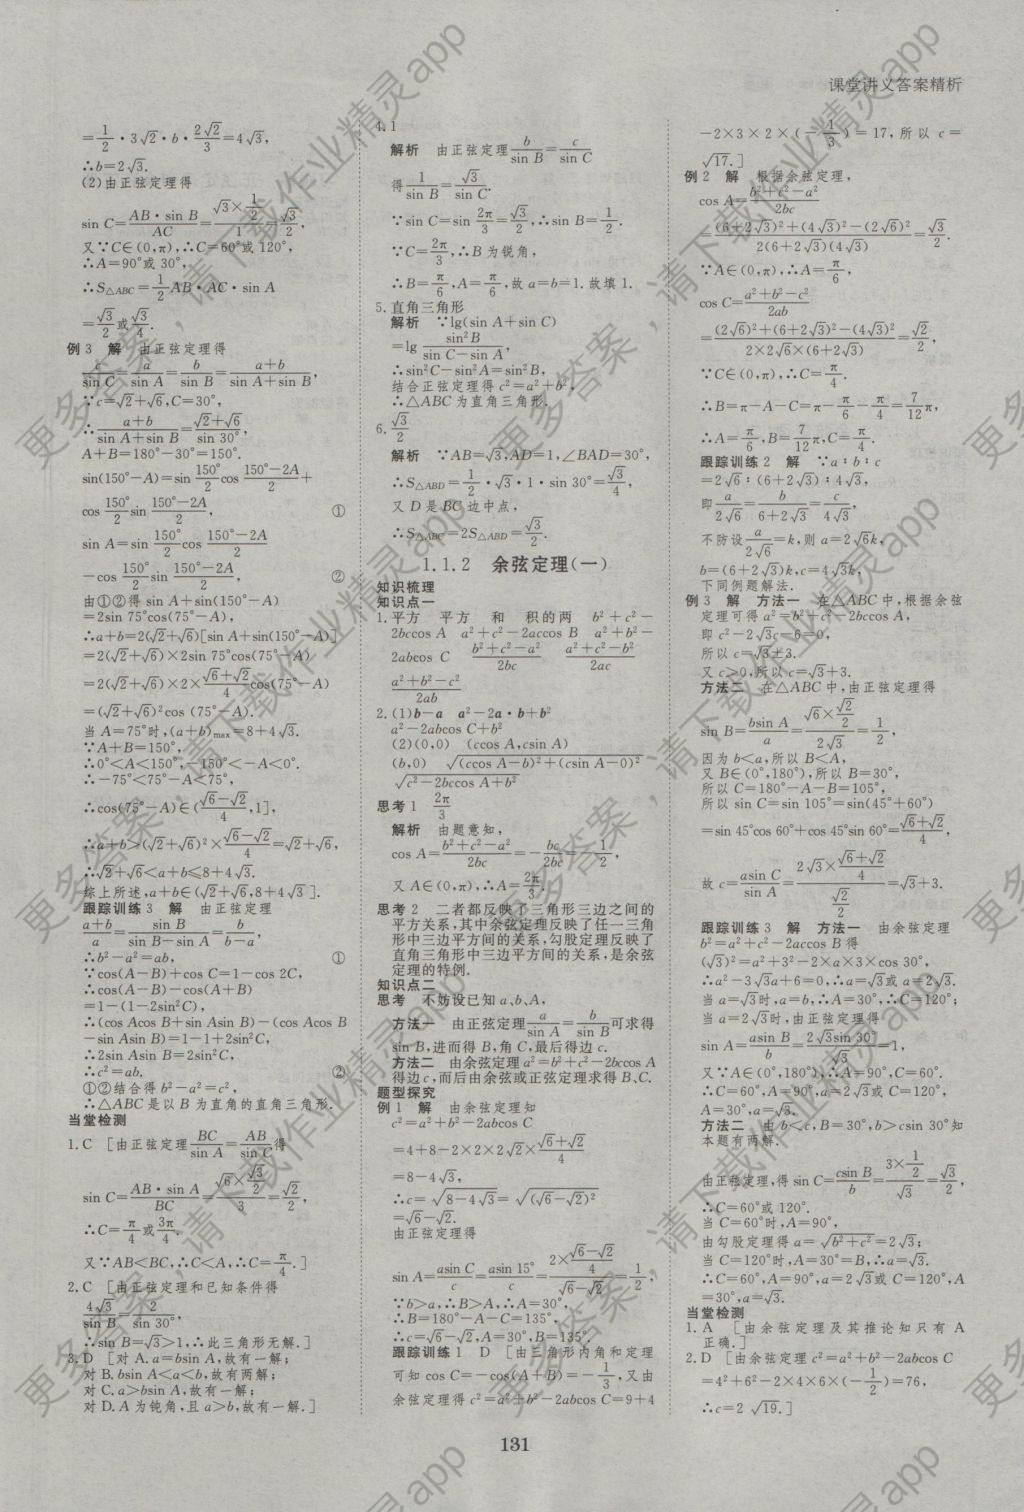 课堂讲义答案精析
=1/2·3√2·b·2√2/3=4√3,
∴b=2√3.
(2)由正弦定理得
sin C=AB·sin B/AC=(√3×1/2)/1=√3/2,
又∵C∈(0,π),∴C=60°或120°,
∴A=90°或30°,
∴S△ABC=1/2AB·AC·sin A
=√3/2或√3/4.
例3 解 由正弦定理得
c/sin C=a/sin A=b/sin B=(a+b)/(sin A+sin B),
∵c=√2+√6,C=30°,
∴(a+b)/(sin A+sin B)=(√2+√6)/sin 30°,
A+B=180°-30°=150°.
sin(150°-A)=sin 150°/2 cos (150°-2A)/2+
cos 150°/2 sin (150°-2A)/2, ①
sin A=sin 150°/2 cos (150°-2A)/2
-cos 150°/2 sin (150°-2A)/2, ②
由①②得sin A+sin(150°-A)
=2sin 75°cos(75°-A)
∴a+b=2(√2+√6)[sin A+sin(150°-A)]
=2(√2+√6)×2sin 75°cos(75°-A)
=2(√2+√6)×2×(√6+√2)/4 cos(75°-A)
=(√2+√6)²cos (75°-A).
当A=75°时,(a+b)max=8+4√3.
∵A+B=150°,
∴0°<A<150°,-150°<-A<0°.
∴-75°<75°-A<75°,
∴cos(75°-A)∈((√6-√2)/4,1],
∴a+b>(√2+√6)²×(√6-√2)/4=√2+√6,
∴√2+√6<a+b≤8+4√3.
综上所述,a+b∈(√2+√6,8+4√3].
跟踪训练3 解 由正弦定理
(a+b)/a=sin B/(sin B-sin A)=b/(b-a),
∴b²-a²=ab, ①
∵cos(A-B)+cos C=1-cos 2C,
∴cos(A-B)-cos(A+B)
=1-(1-2sin²C),
∴(cos Acos B+sin Asin B)-(cos Acos B
-sin Asin B)=1-1+2sin²C,
∴2sin Asin B=2sin²C,
∴c²=ab. ②
①②结合得b²-a²=c²,
∴△ABC是以B为直角的直角三角形.
当堂检测
1.C [由正弦定理BC/sin A=AB/sin C得
sin C=AB·sin A/BC=(√6×√3/2)/3=√2/2,
∴C=π/4或3π/4.
又∵AB<BC,∴C<A,∴C=π/4.]
2.C [由正弦定理和已知条件得
4√3/sin B=2/sin 30°,
∴sin B=√3>1,∴此三角形无解.]
3.D [对A.a=bsin A,故有一解;
对B.bsin A<a<b,故有两解;
对C.a>bsin A,故有一解;
对D.A为钝角,且a>b,故有一解.]
4.1
解析 由正弦定理b/sin B=c/sin C
得1/sin B=√3/sin C.
∵sin C=sin 2π/3=√3/2,∴sin B=1/2.
∵C=2π/3,∴B为锐角,
∴B=π/6,A=π/6,故a=b=1.故填1.
5.直角三角形
解析 ∵lg(sin A+sin C)
=lg sin²B/(sin C-sin A),
∴sin²C-sin²A=sin²B,
结合正弦定理得c²=a²+b²,
∴△ABC为直角三角形.
6.√3/2
解析 ∵AB=√3,AD=1,∠BAD=30°,
∴S△ABD=1/2·√3·1·sin 30°=√3/4,
又D是BC边中点,
∴S△ABC=2S△ABD=√3/2.
1.1.2 余弦定理(一)
知识梳理
知识点一
1.平方 平方 和 积的两 b²+c²-
2bccos A a²+c²-2accos B a²+b²-
2abcos C (b²+c²-a²)/2bc (a²+c²-b²)/2ac
(a²+b²-c²)/2ab
2.(1)b-a a²-2a·b+b²
a²-2abcos C+b²
(2)(0,0) (ccos A,csin A)
(b,0) √((ccos A-b)²+(csin A-0)²)
√(c²-2bccos A+b²)
思考1 2π/3
解析 由题意知,
cos A=(b²+c²-a²)/2bc=-bc/2bc=-1/2,
又A∈(0,π),∴A=2π/3.
思考2 二者都反映了三角形三边之间的
平方关系,其中余弦定理反映了任一三角
形中三边平方间的关系,勾股定理反映了
直角三角形中三边平方间的关系,是余弦
定理的特例.
知识点二
思考 不妨设已知a、b、A,
方法一 由正弦定理a/sin A=b/sin B可求得
sin B,进而得B,角C,最后得边c.
方法二 由余弦定理a²=b²+c²-2bccos A
得边c,而后由余弦或正弦定理求得B、C.
题型探究
例1 解 由余弦定理知
c²=a²+b²-2abcos C
=4+8-2×2×2√2×(√6+√2)/4
=8-4√3,
∴c=√(8-4√3)=√((√6-√2)²)
=√6-√2.
由正弦定理得
sin A=asin C/c=asin 15°/c=(2×(√6-√2)/4)/(√6-√2)=1/2,
∵b>a,∴B>A,∴A=30°,
∴B=180°-A-C=135°,
∴c=√6-√2,A=30°,B=135°.
跟踪训练1 D [由三角形内角和定理
可知cos C=-cos(A+B)=-1/3,又由
余弦定理得c²=a²+b²-2abcos C=9+4
-2×3×2×(-1/3)=17,所以c=
√17.]
例2 解 根据余弦定理,
cos A=(b²+c²-a²)/2bc
=((6+2√3)²+(4√3)²-(2√6)²)/(2(6+2√3)(4√3))=√3/2.
∵A∈(0,π),∴A=π/6,
cos C=(a²+b²-c²)/2ab
=((2√6)²+(6+2√3)²-(4√3)²)/(2×2√6×(6+2√3))=√2/2,
∵C∈(0,π),∴C=π/4.
∴B=π-A-C=π-π/6-π/4=7/12π,
∴A=π/6,B=7/12π,C=π/4.
跟踪训练2 解 ∵a∶b∶c
=2√6∶(6+2√3)∶4√3,
即a/2√6=b/(6+2√3)=c/4√3,
不防设a/2√6=k,则a=2√6k,
b=(6+2√3)k,c=4√3k,
下同例题解法.
例3 解 方法一 在△ABC中,根据余弦
定理可得a²=b²+c²-2bccos A,
即c²-2√3c-6=0,
所以c=√3±3.
又c>0,所以c=√3+3.
方法二 在△ABC中,由正弦定理得
sin B=bsin A/a=(√6×√2/2)/2√3=1/2,
因为b<a,所以B<A,
又B∈(0°,180°),所以B=30°,
所以C=180°-A-B=105°,
所以sin C=sin 105°=sin(45°+60°)
=sin 45°cos 60°+cos 45°sin 60°=(√6+√2)/4,
故c=asin C/sin A=(2√3×(√6+√2)/4)/(√2/2)=√3+3.
跟踪训练3 解 方法一 由余弦定理
b²=a²+c²-2accos B得
(√3)²=a²+3²-2×a×3×cos 30°,
∴a²-3√3a+6=0,∴a=√3或a=2√3.
当a=√3时,a=b,∴A=30°,∴C=120°;
当a=2√3时,由正弦定理得
sin A=asin B/b=2√3sin 30°/√3=1,
又∵A∈(0°,180°),∴A=90°,C=60°.
∴C=60°,A=90°,a=2√3或C=120°,
A=30°,a=√3.
方法二 由b<c,B=30°,b>csin 30°知
本题有两解.
由正弦定理,得sin C=csin B/b=(3×1/2)/√3=√3/2,
∴C=60°或120°.
当C=60°时,A=90°,
由勾股定理得a=√(b²+c²)=2√3;
当C=120°时,A=30°=B,∴a=√3.
∴C=60°,A=90°,a=2√3或C=120°,A
=30°,a=√3.
当堂检测
1.A [由余弦定理及其推论知只有A
正确.]
2.D [由余弦定理c²=a²+b²-2abcos C
=4²+6²-2×4×6×(-1/2)=76,
∴c=2√19.]
131
更多答案,请下载作业精灵app